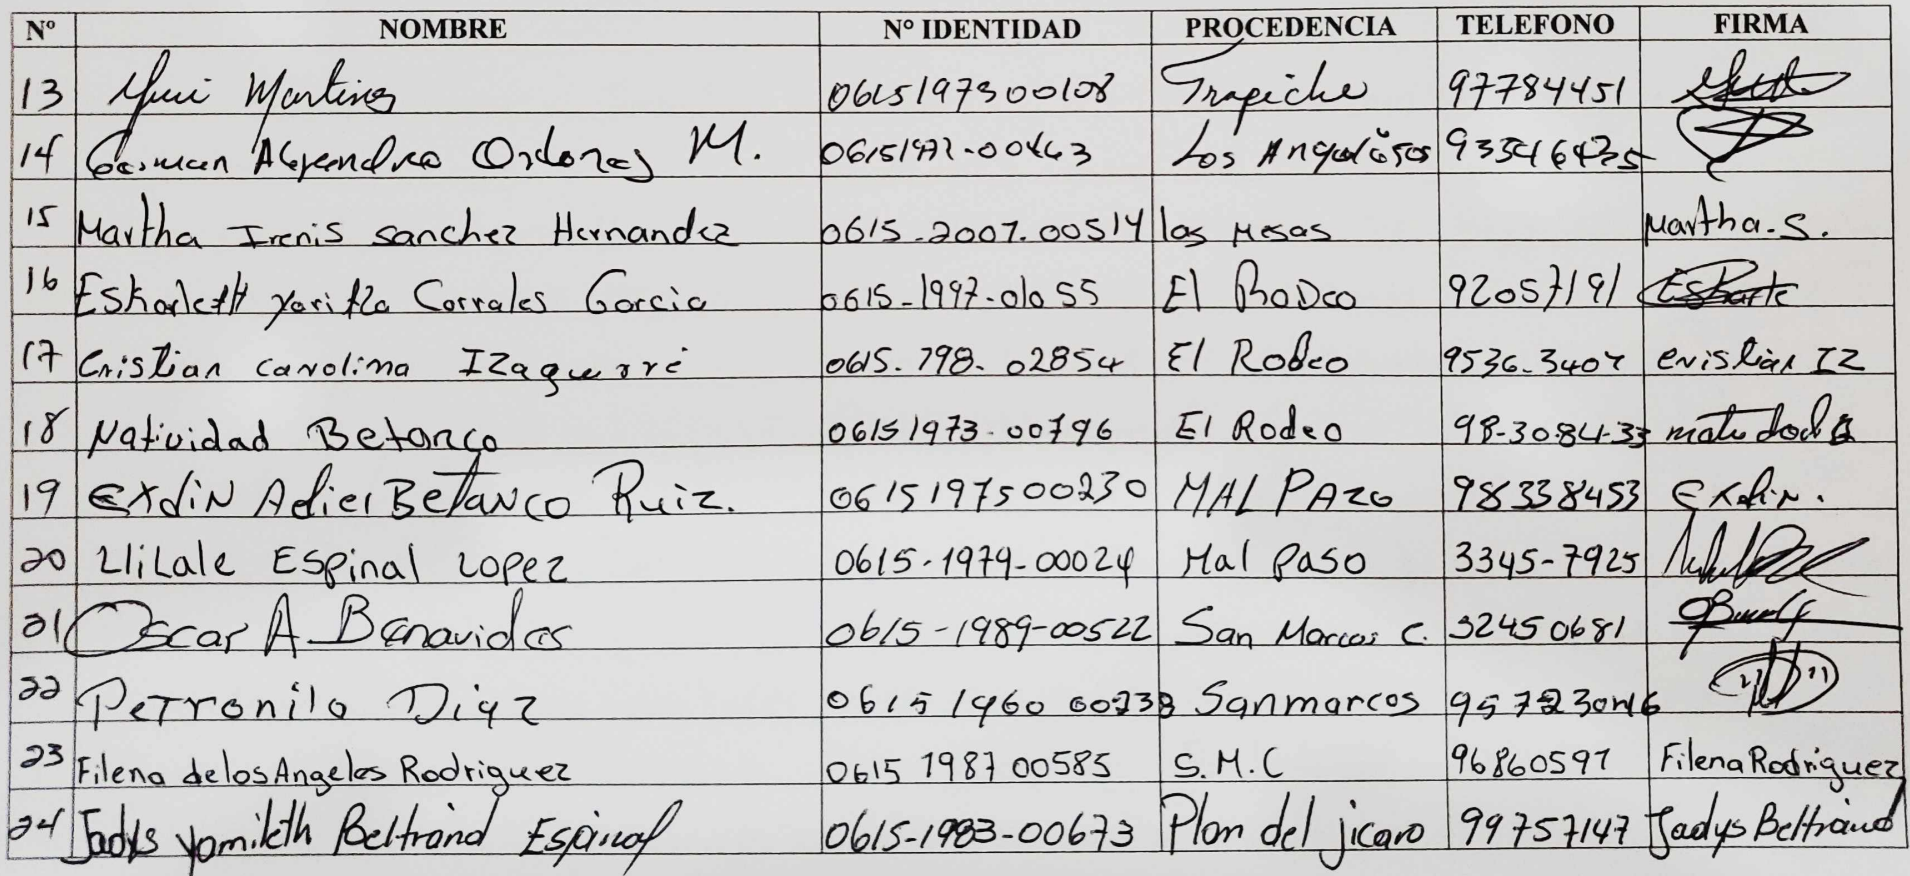 Nº NOMBRE Nº IDENTIDAD PROCEDENCIA TELEFONO FIRMA
13 Yuri Martinez 0615197300108 Trapiche 97784451
14 Alejandro Ordonez M. Los
15 Martha Irenis sanchez Hernandez 0615-2007-00514 las Mesas Martha.S.
16 Eskarleth Yaritza Corrales Garcia 0615-1997-01055 El RoDeo 92057191
17 Cristian carolima IZaguerré 0615-798-02854 El Rodeo cristian IZ
18 Natividad Betanco 06151973-00796 El Rodeo 98-3084-33
19 EXdiN Adiel BetaNco Ruiz. 0615197500230 MAL PAZO 98338453 Exdin.
20 Espinal Lopez 0615-1979-00024 Mal Paso 3345-7925
21 Oscar A Benavides 0615-1989-00522 San Marcos C. 32450681
22 Petronilo Diaz 0615 1960 Sanmarcos
23 Filena delosAngeles Rodriguez 0615 1987 00585 S.M.C 96860597 Filena Rodriguez
24 Jadys yomileth Beltrand Espinal 0615-1983-00673 Plan del jicaro 99757147 Jadys Beltrand